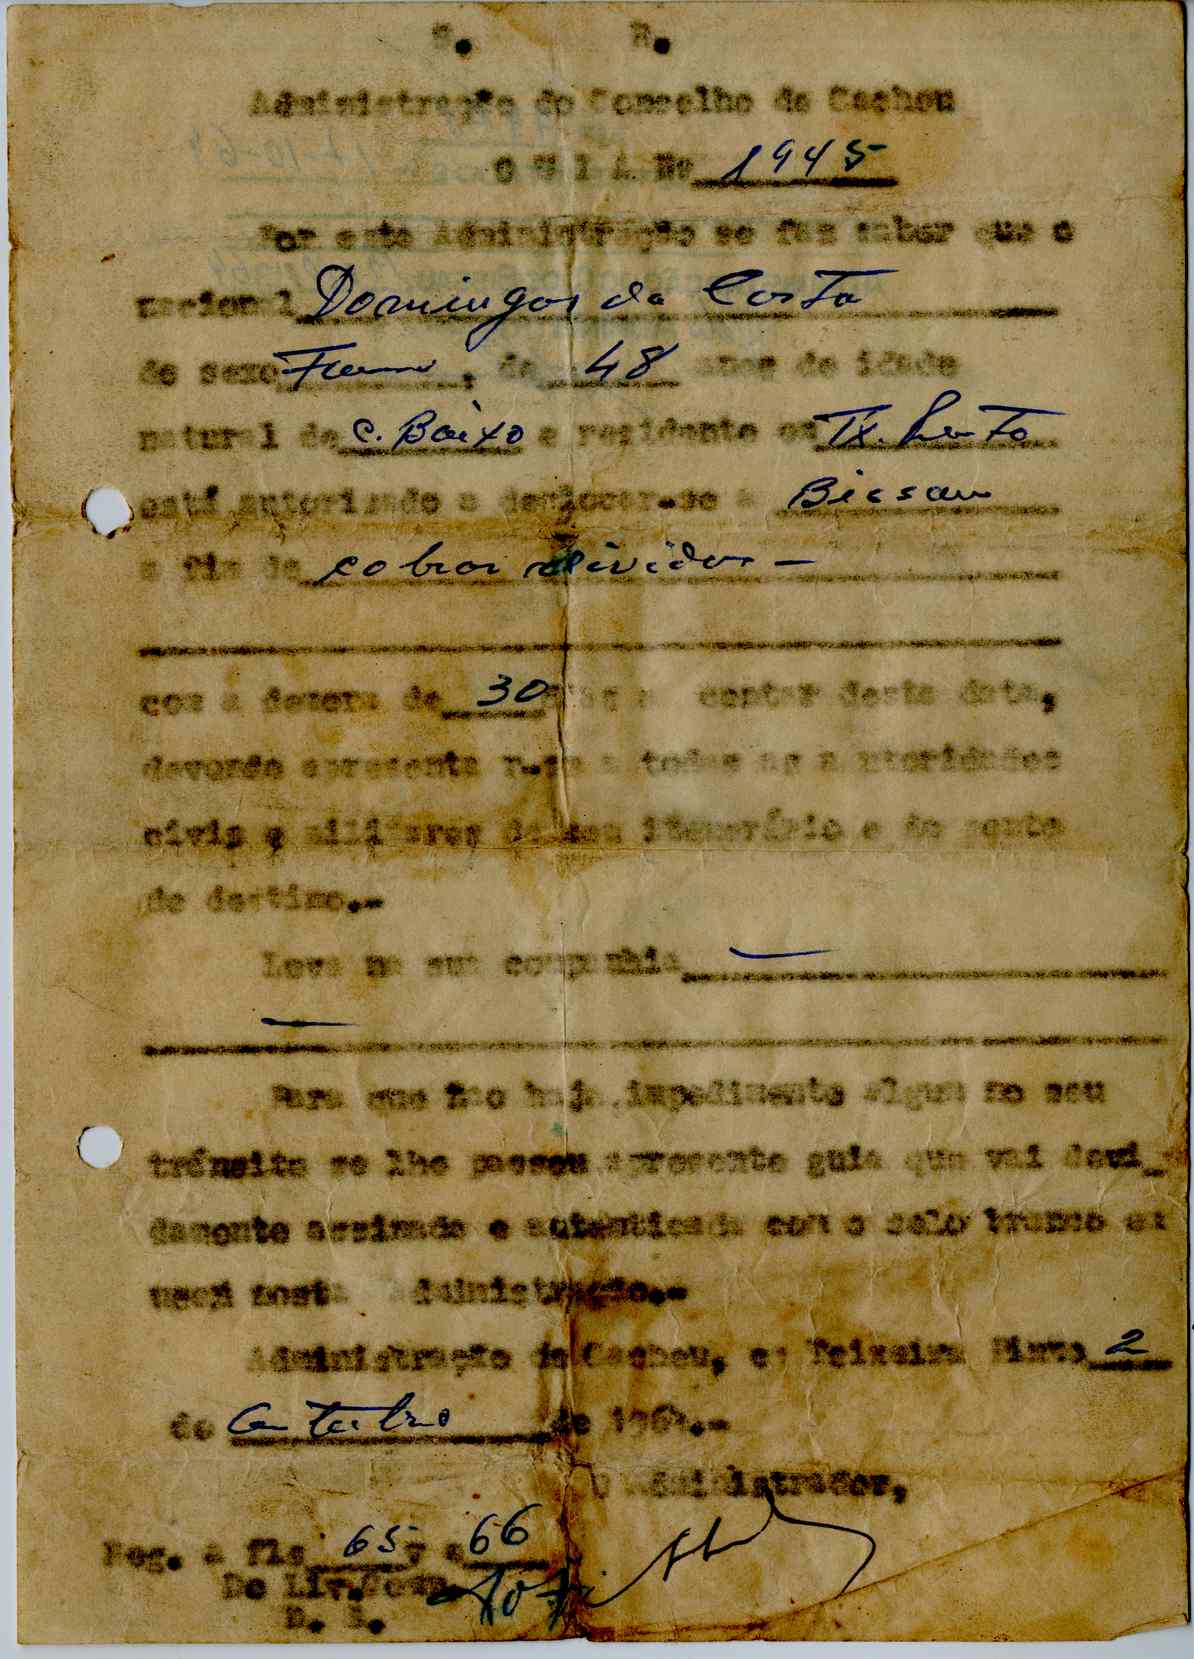 S. R.
Administração do Concelho de Cacheu
G U I A Nº 1945
Por esta Administração se faz saber que o
nacional Domingos da Costa
de sexo, de 48 anos de idade
natural de C. Baixo e residente em Tx. Pinto
está autorizado a deslocar-se a Bissau
a fim de cobrar dividas —
com a demora de 30 dias a contar desta data,
devendo apresentar-se a todas as autoridades
civis e militares do seu itenerário e do ponto
de destino.-
Leva na sua companhia —
—
Para que não haja impedimento algum no seu
trânsito se lhe passou apresente guia que vai devi_
damente assinada e autenticada com o selo branco em
uso nesta Administração.-
Administração de Cacheu, em Teixeira Pinto 2
de Outubro de 1964.-
O Administrador,
Reg. a fls 65 v a 66
Do Liv.